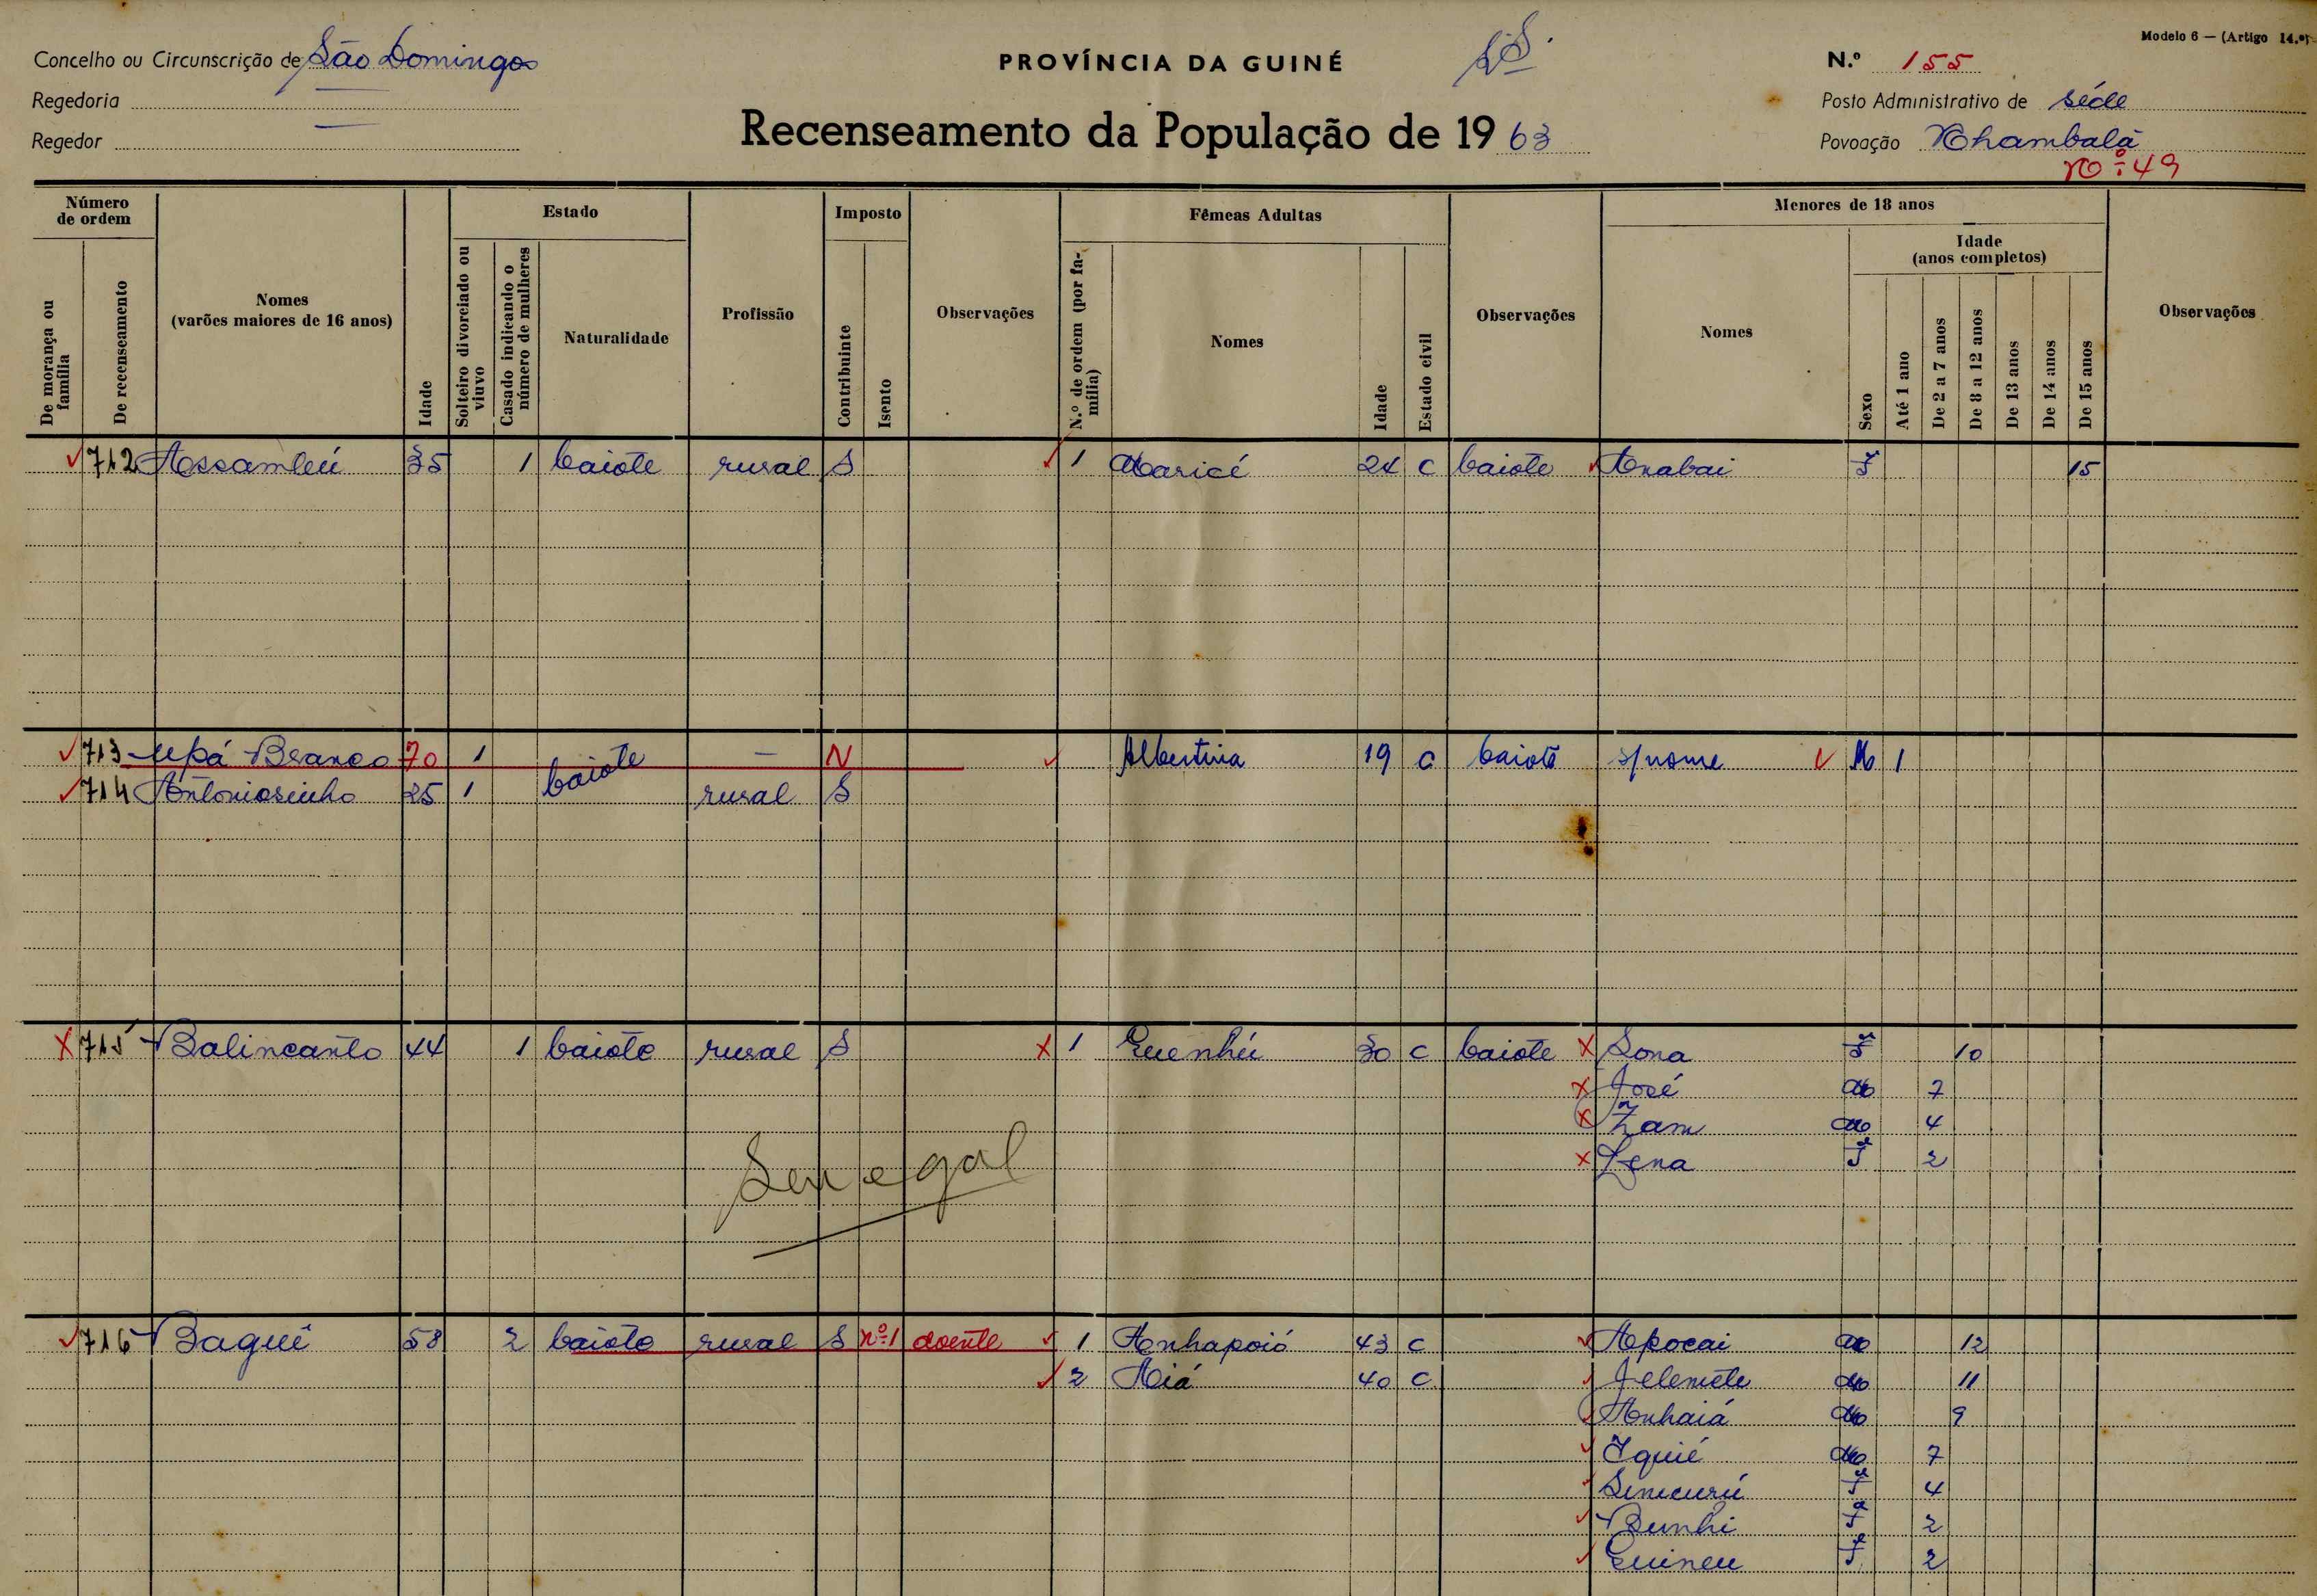 Modelo 6 — (Artigo 14.º)
Concelho ou Circunscrição de São Domingos
PROVÍNCIA DA GUINÉ
N.º 155
Regedoria —
Recenseamento da População de 1963
Posto Administrativo de Séde
Regedor —
Povoação Nhambalã
Nº 49
Número de ordem
Estado
Imposto
Fêmeas Adultas
Menores de 18 anos
Idade (anos completos)
De morança ou família
De recenseamento
Nomes (varões maiores de 16 anos)
Idade
Solteiro divorciado ou viuvo
Casado indicando o número de mulheres
Naturalidade
Profissão
Contribuinte
Isento
Observações
N.º de ordem (por família)
Nomes
Idade
Estado civil
Observações
Nomes
Sexo
Até 1 ano
De 2 a 7 anos
De 8 a 12 anos
De 13 anos
De 14 anos
De 15 anos
Observações
712 Assamleú 35 1 baiote rural S 1 Maricé 24 C baiote Anabai F 15
713 Upá Branco 70 1 baiote — N Albertina 19 C baiote s/nome M 1
714 Antoniosinho 25 1 rural S
715 Balincanto 44 1 baiote rural S 1 Quenhú 30 C baiote Sona F 10
José M 7
Zam M 4
Zena F 2
Senegal
716 Baguê 58 2 baiote rural S nº 1 doente 1 Anhapoió 43 C Apocai M 12
2 Aiá 40 C Jelemete M 11
Anhaiá M 9
Iquié M 7
Simecurú F 4
Bunhi F 2
Quineu F 2